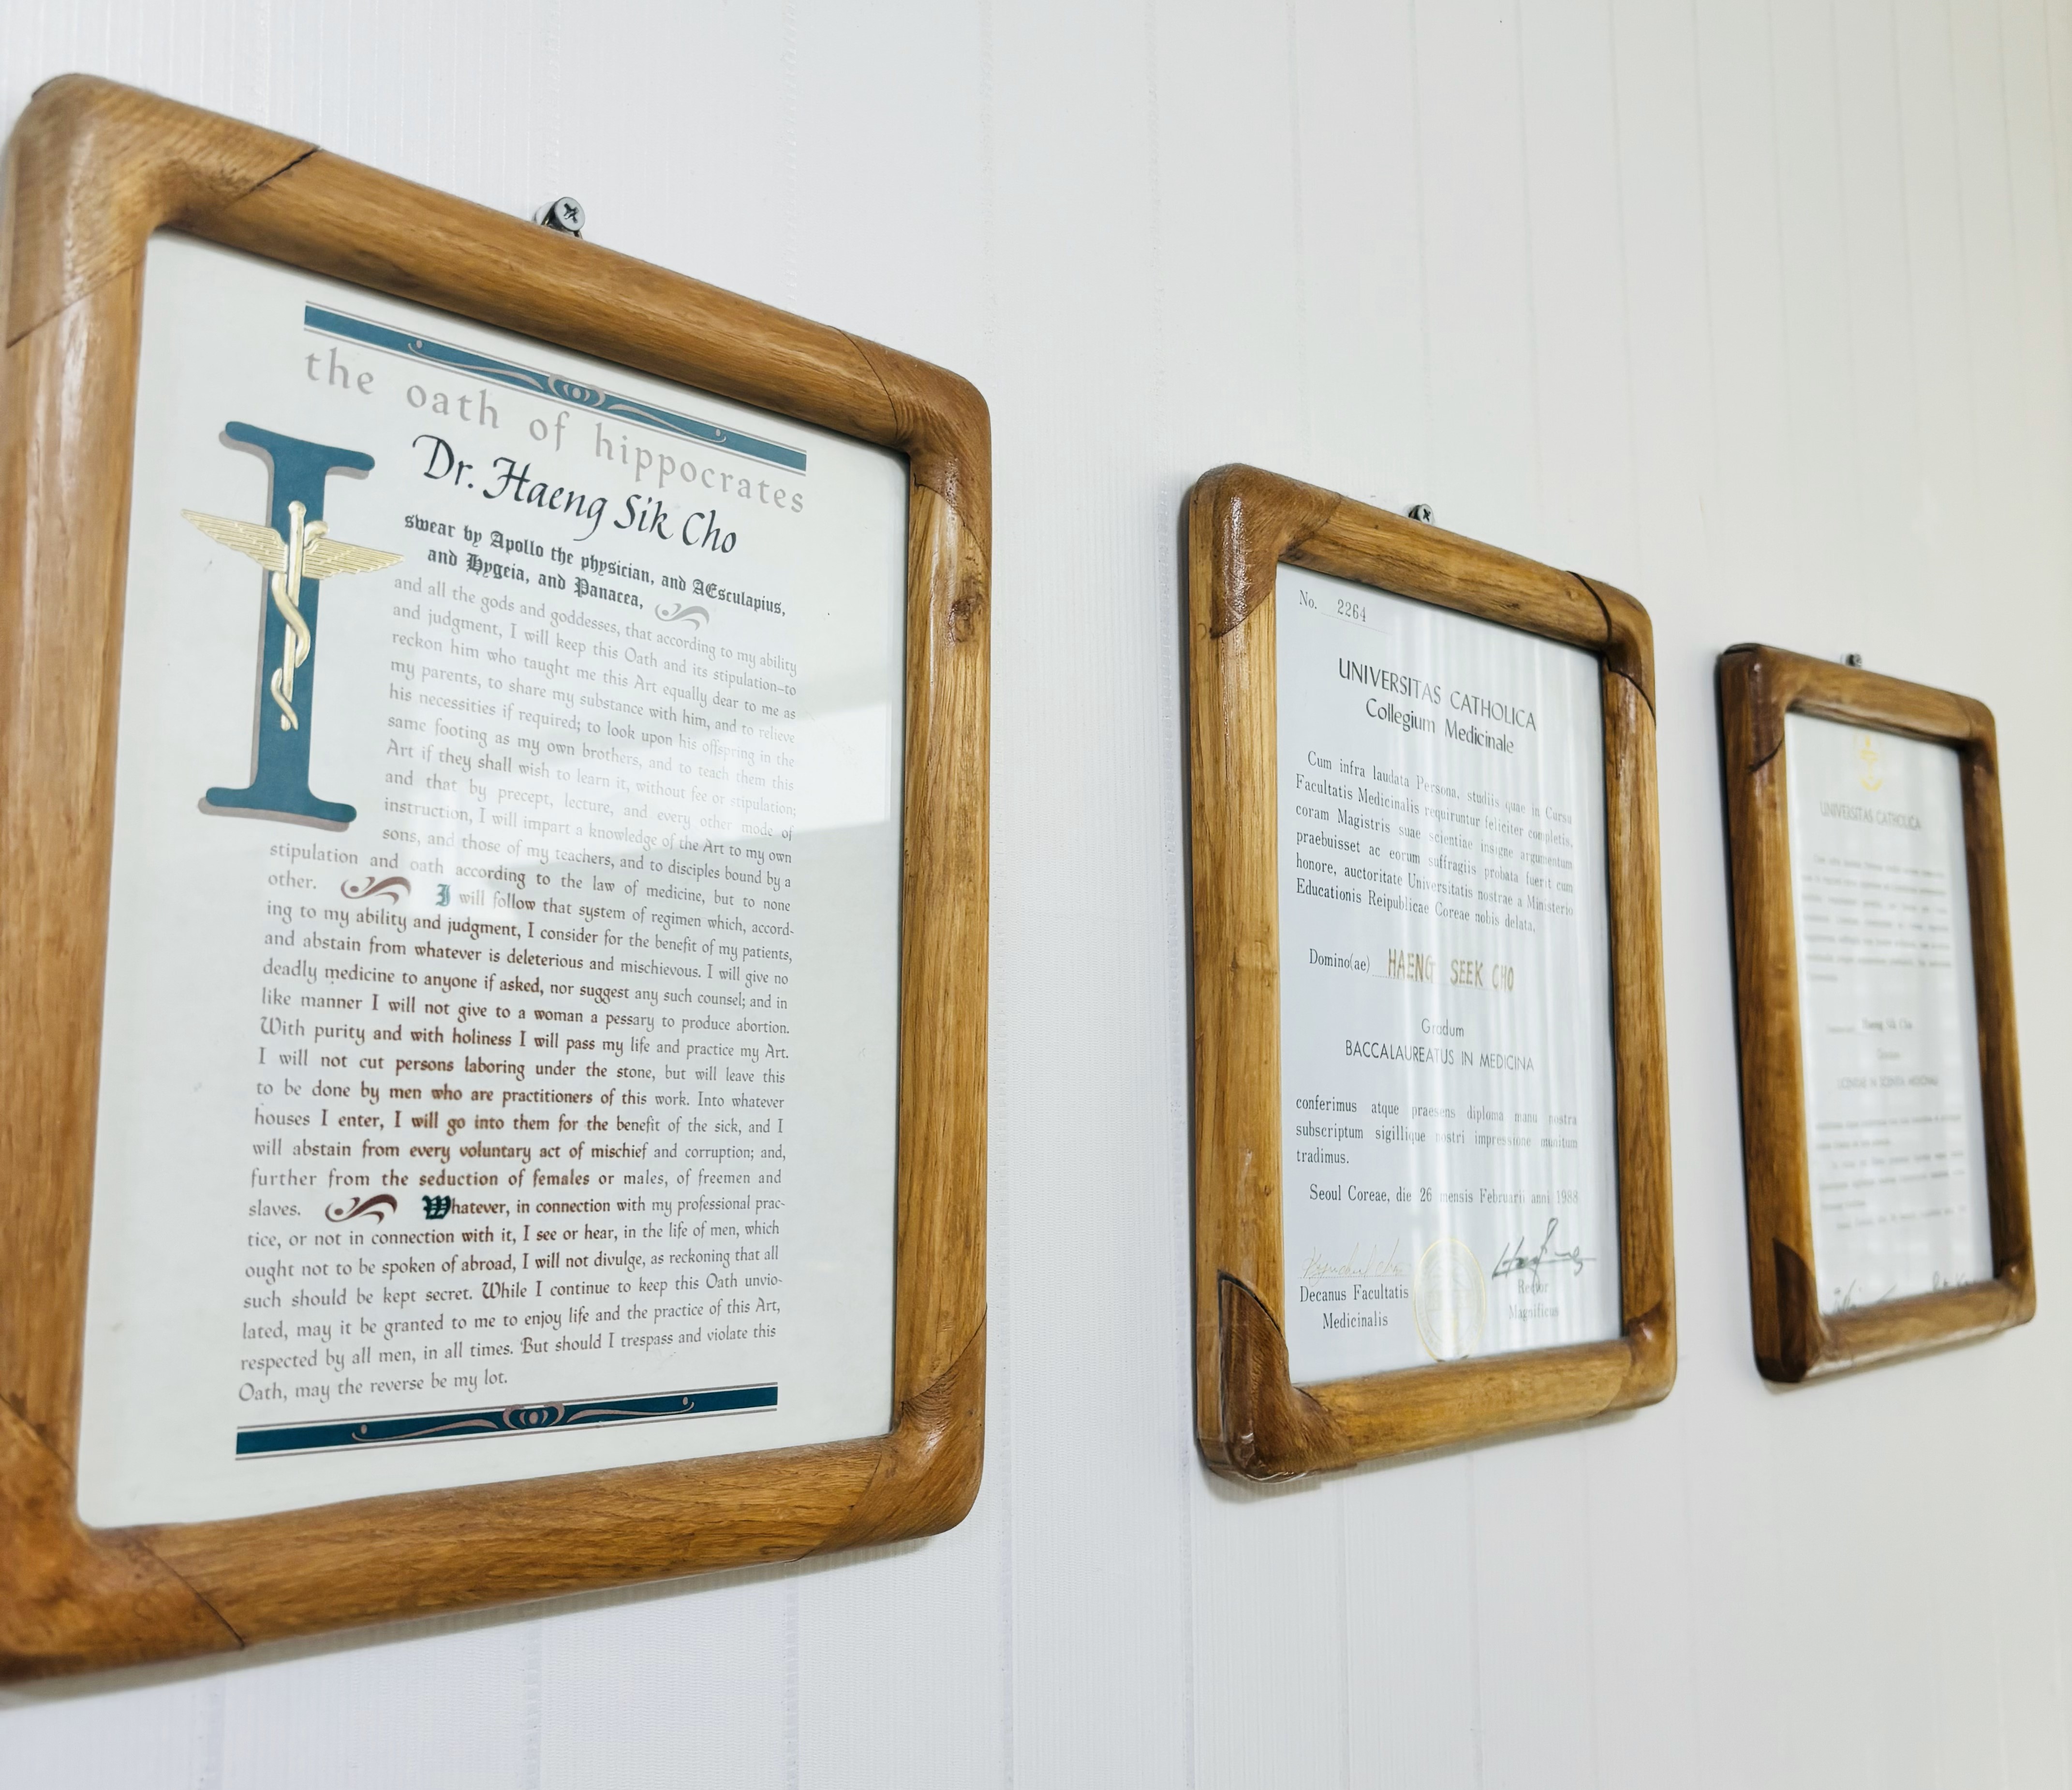 the oath of hippocrates
I
Dr. Haeng Sik Cho
swear by Apollo the physician, and AEsculapius,
and Hygeia, and Panacea,
and all the gods and goddesses, that according to my ability
and judgment, I will keep this Oath and its stipulation–to
reckon him who taught me this Art equally dear to me as
my parents, to share my substance with him, and to relieve
his necessities if required; to look upon his offspring in the
same footing as my own brothers, and to teach them this
Art if they shall wish to learn it, without fee or stipulation;
and that by precept, lecture, and every other mode of
instruction, I will impart a knowledge of the Art to my own
sons, and those of my teachers, and to disciples bound by a
stipulation and oath according to the law of medicine, but to none
other. I will follow that system of regimen which, accord-
ing to my ability and judgment, I consider for the benefit of my patients,
and abstain from whatever is deleterious and mischievous. I will give no
deadly medicine to anyone if asked, nor suggest any such counsel; and in
like manner I will not give to a woman a pessary to produce abortion.
With purity and with holiness I will pass my life and practice my Art.
I will not cut persons laboring under the stone, but will leave this
to be done by men who are practitioners of this work. Into whatever
houses I enter, I will go into them for the benefit of the sick, and I
will abstain from every voluntary act of mischief and corruption; and,
further from the seduction of females or males, of freemen and
slaves. Whatever, in connection with my professional prac-
tice, or not in connection with it, I see or hear, in the life of men, which
ought not to be spoken of abroad, I will not divulge, as reckoning that all
such should be kept secret. While I continue to keep this Oath unvio-
lated, may it be granted to me to enjoy life and the practice of this Art,
respected by all men, in all times. But should I trespass and violate this
Oath, may the reverse be my lot.
No. 2264
UNIVERSITAS CATHOLICA
Collegium Medicinale
Cum infra laudata Persona, studiis quae in Cursu
Facultatis Medicinalis requiruntur feliciter completis,
coram Magistris suae scientiae insigne argumentum
praebuisset ac eorum suffragiis probata fuerit cum
honore, auctoritate Universitatis nostrae a Ministerio
Educationis Reipublicae Coreae nobis delata,
Domino(ae) HAENG SEEK CHO
Gradum
BACCALAUREATUS IN MEDICINA
conferimus atque praesens diploma manu nostra
subscriptum sigillique nostri impressione munitum
tradimus.
Seoul Coreae, die 26 mensis Februarii anni 1988
Decanus Facultatis
Medicinalis
Rector
Magnificus
UNIVERSITAS CATHOLICA
Haeng Sik Cho